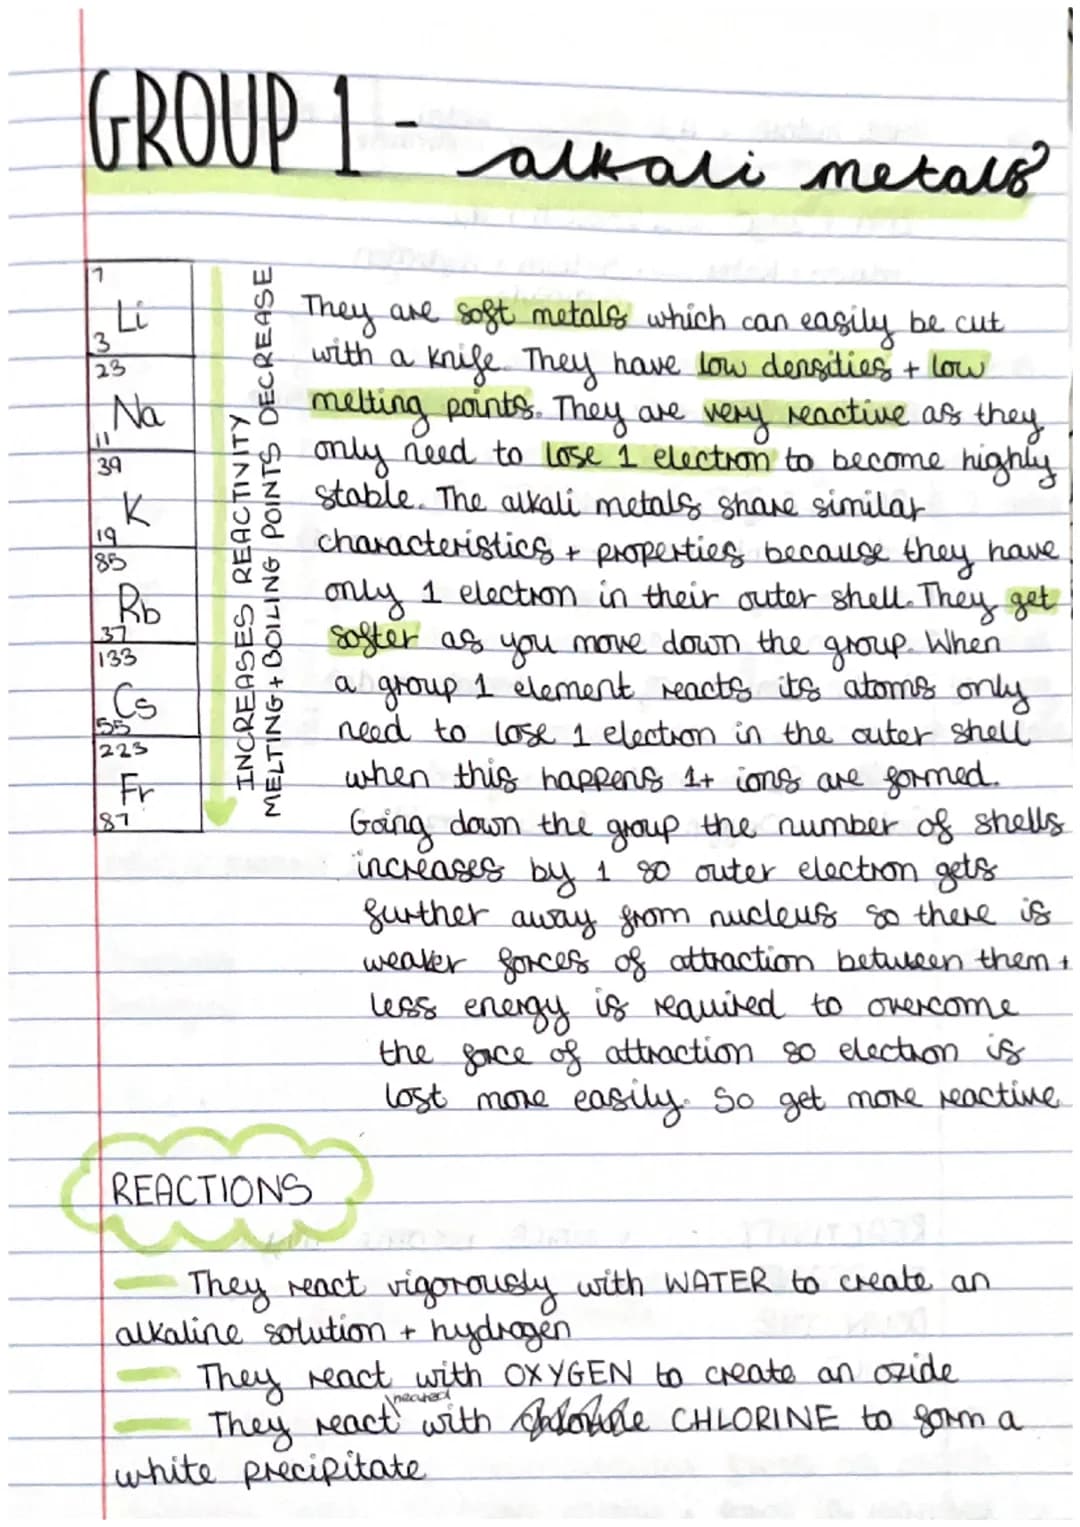 GROUP 1 - alkali metals
7
Li
3
23
Na
11
39
K
19
85
Rb
37
133
Cs
55
223
Fr
87
INCREASES REACTIVITY
MELTING + BOILING POINTS DECREASE
They are soft metals which can easily be cut
with a knife. They have low densities + low
melting points. They are very reactive as they
only need to lose 1 electron to become highly
stable. The alkali metals share similar
characteristics + properties because they have
only 1 electron in their outer shell. They get
softer as you move down the group. When
a group 1 element reacts its atoms only
need to lose 1 electron in the outer shell
when this happens 1+ ions are formed.
Going down the group the number of shells
increases by 1 so outer electron gets
further away from nucleus so there is
weaker forces of attraction between them +
less energy is required to overcome
the force of attraction so electron is
lost more easily. So get more reactive
REACTIONS
They react vigorously with WATER to create an
alkaline solution + hydrogen
They react with OXYGEN to create an oxide
heated
They react with CHLORINE to form a
white precipitate